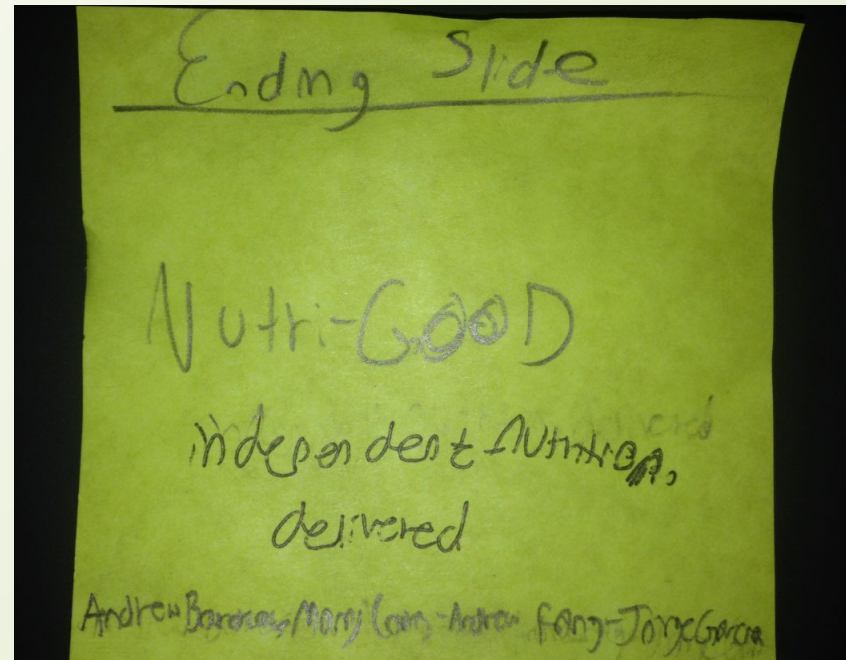 Ending Slide
Nutri-GOOD
independent nutrition,
delivered
Andrew Andrew Fang-Jorge Garcia